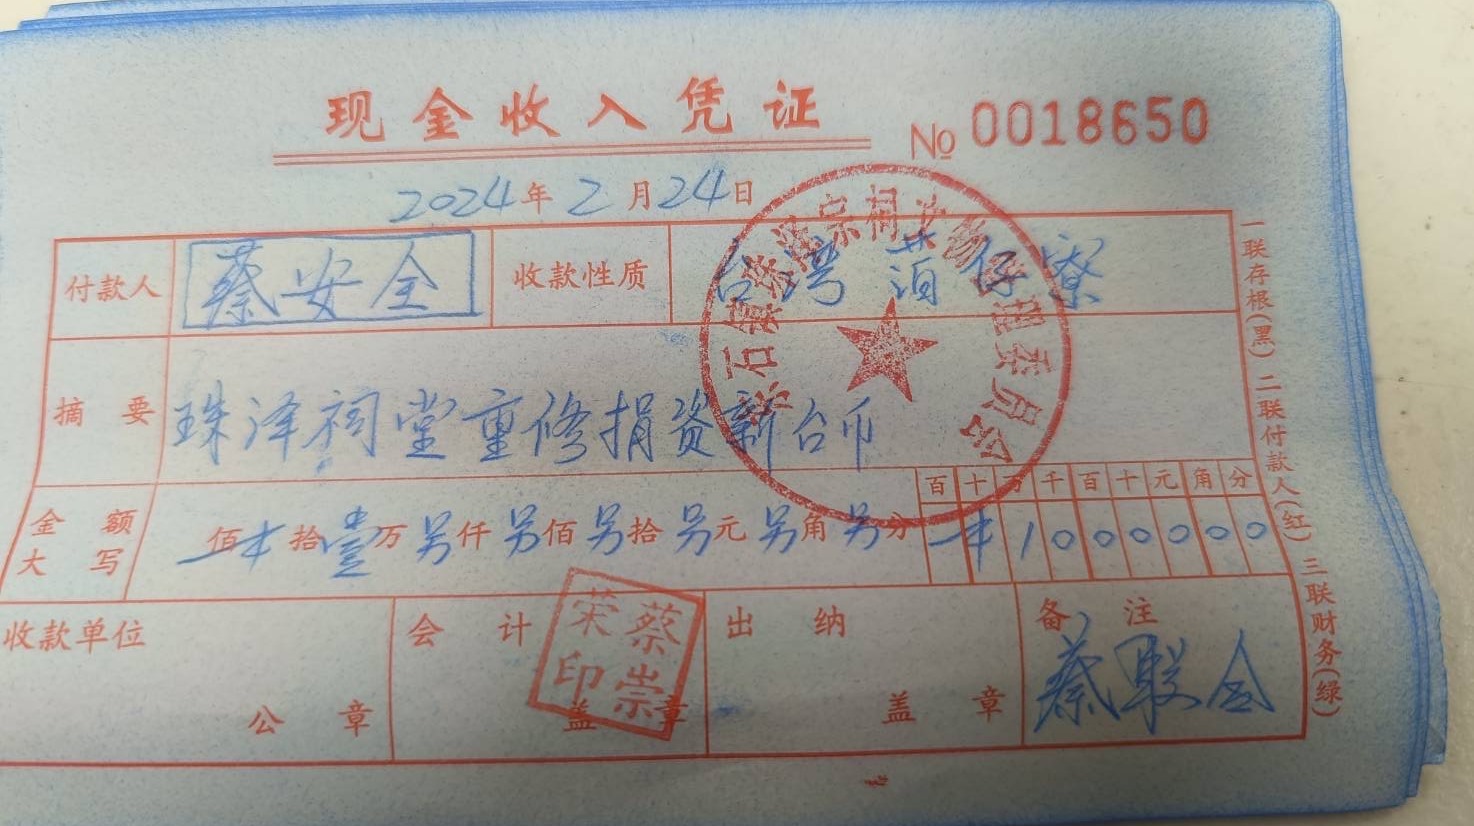 现金收入凭证
№ 0018650
2024年2月24日
付款人 蔡安全 收款性质 台湾 莆仔寮
摘要 珠泽祠堂重修捐资新台币
百十万千百十元角分
金额大写 佰 拾壹万另仟另佰另拾另元另角另分 10000000
收款单位 公章
会计 盖章
蔡崇荣印
出纳 盖章
备注 蔡联全
一联存根(黑) 二联付款人(红) 三联财务(绿)